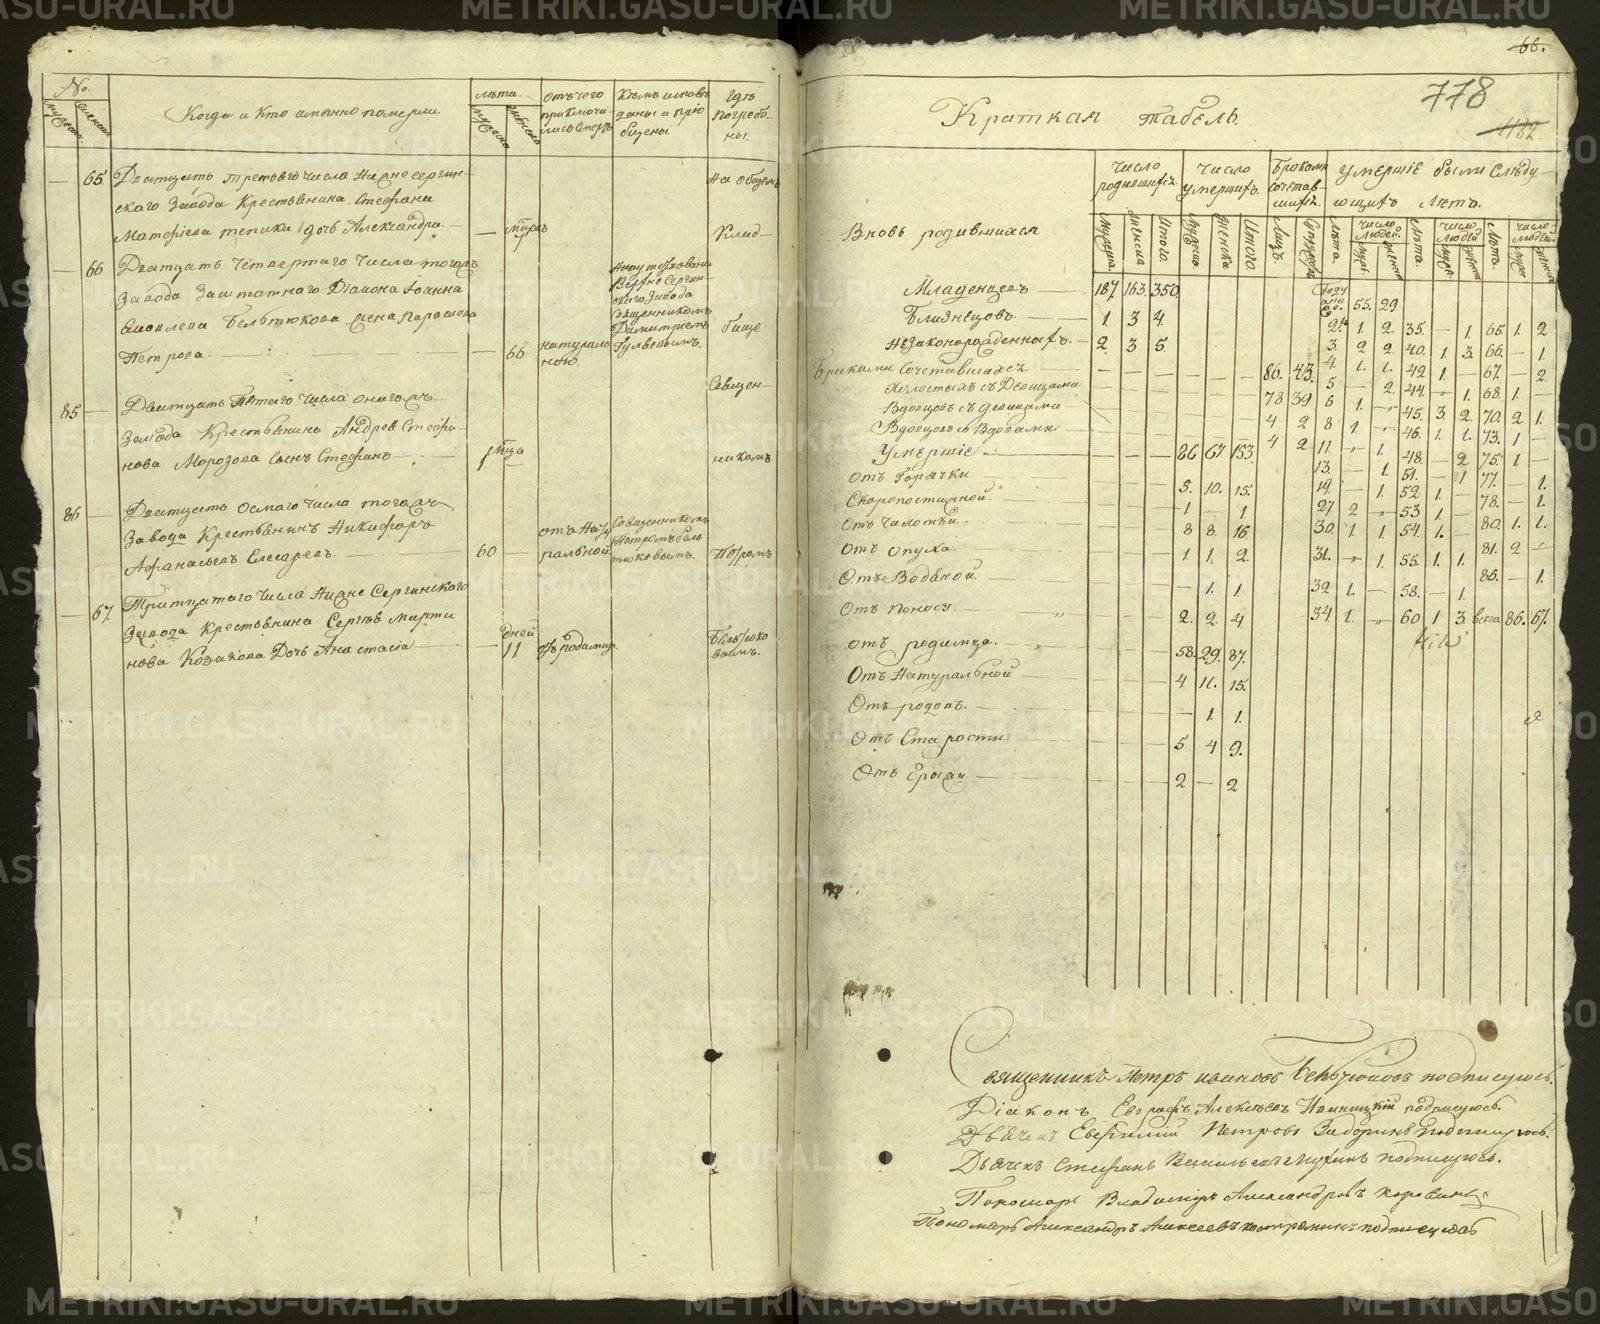 №.
мужеска.
женска.
Когда и кто имянно померли.
лѣта.
мужеска
женска
отъ чего приключилась смерть
кѣмъ исповѣданы и пріобщены.
Гдѣ погребены.
— 65. Дватцать третьяго числа Нижнесергин-
скаго завода крестьянина Стефана
Матфіева дочь Александра. —
На общемъ
клад-
— 66 Дватцать четвертаго числа тогожъ
завода заштатнаго Діакона Іоанна
Яковлева Бельтюкова жена Параскева
Петрова. — 66
натуральною
Верхнесергинскаго завода священникомъ Димитріемъ
бище
85 — Дватцать пятаго числа
завода крестьянина Андрея Стефа-
нова Морозова сынъ Стефанъ 1
Священ-
никомъ
86 — Дватцать осмаго числа тогожъ
завода крестьянинъ Никифоръ
Афанасьевъ Слесаревъ. 60 —
отъ натуральной
Священникомъ Петромъ Бельтюковымъ.
Петромъ
— 67. Тритцатаго числа Нижне Сергинскаго
завода крестьянина Сергѣя Марты-
нова Козакова дочь Анастасія — дней 11
отъ родимца.
Бельтюковымъ.
66.
778
1182
Краткая табель.
число родившихся.
число умершихъ.
Браками сочетавшихся.
Умершіе были слѣду-
ющихъ лѣтъ.
Вновь родившихся
Младенцевъ — 187. 163. 350.
Близнецовъ. — 1. 3 4.
Незаконорожденныхъ. — 2. 3 5.
Браками сочетавшихся. 86. 43.
Холостыхъ съ девицами 78 39
Вдовцовъ съ девицами 4 2
Вдовцовъ со вдовами 4 2
Умершіе. 86 67 153
Отъ Горячки 5. 10. 15.
Скоропостижной. 1 — 1
Отъ Чахотки. 8 8. 16
Отъ Опуха. 1 1. 2.
Отъ Водяной — 1. 1
Отъ Поносу. 2. 2 4
Отъ родимца. 58. 29. 87.
Отъ Натуральной 4 11. 15.
Отъ родовъ. — 1. 1.
Отъ Старости 5. 4 9.
Отъ Грыжи 2 — 2
55. 29
2. 1. 2. 35. — 1. 65. 1. 2
3. 2 2. 40. 1. 3. 66. — 1.
4. 1. 1. 42 1 — 67. — 2
5 — 2. 44. — 1. 68. 1. —
6 1. — 45. 3 2. 70. 2 1.
8 1 — 46. 1. 1. 73. 1 —
11. — 1. 48. — 2 75. 1 —
13. — 1. 51. — 1 77. — 1.
19. — 1. 52 1 — 78. — 1.
27 2 — 53 1 — 80. 1. 1.
30. 1 1. 54. 1. — 81. 2 —
31. — 1. 55. 1. 1. 86. — 1.
32 1. — 58. — 1.
34 1. — 60 1 3 всего. 86. 67.
Священникъ Петръ Ивановъ Бельтюковъ подписуюсь.
Діаконъ Евграфъ Алексѣевъ подписуюсь.
Дьячекъ Евфимій Петровъ Задоринъ подписуюсь.
Дьячекъ Стефанъ Васильевъ подписуюсь.
Пономарь Владимиръ Александровъ Коровинъ
Пономарь Александръ Алексеевъ подписуюсь
METRIKI.GASU-URAL.RU